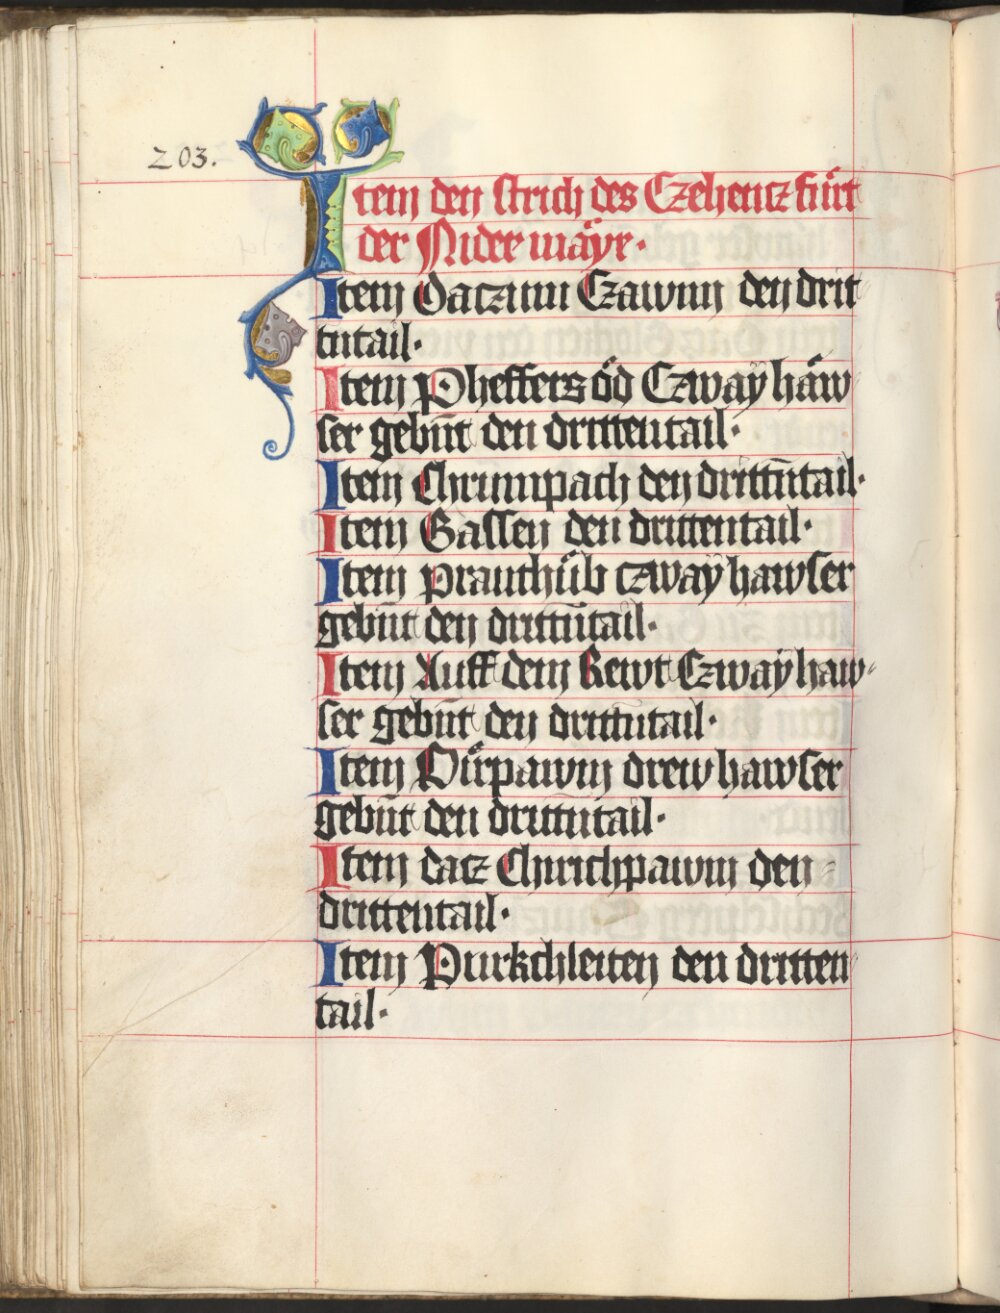 203.
Item den strich des Czehentz fürt
der Nider mäyr.
Item Daczmn Czawnn den drit
tntail.
Item Pheffers öd Czway häw
ser gebnt den drittentail.
Item Chrumpach den drittn̄tail.
Item Gassen den drittentail.
Item Prauthüb czwaÿ hawser
gebn̄t den drittn̄tail.
Item Auff dem Rewt Czwaÿ haw-
ser gebn̄t den drittn̄tail.
Item Dürpawm drew hawser
gebn̄t den drittn̄tail.
Item datz Chirichpawm den
drittentail.
Item Purkchleiten den dritten
tail.